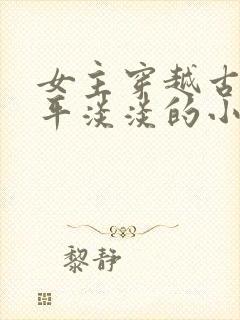 女主穿越古
平淡淡的小
黎静